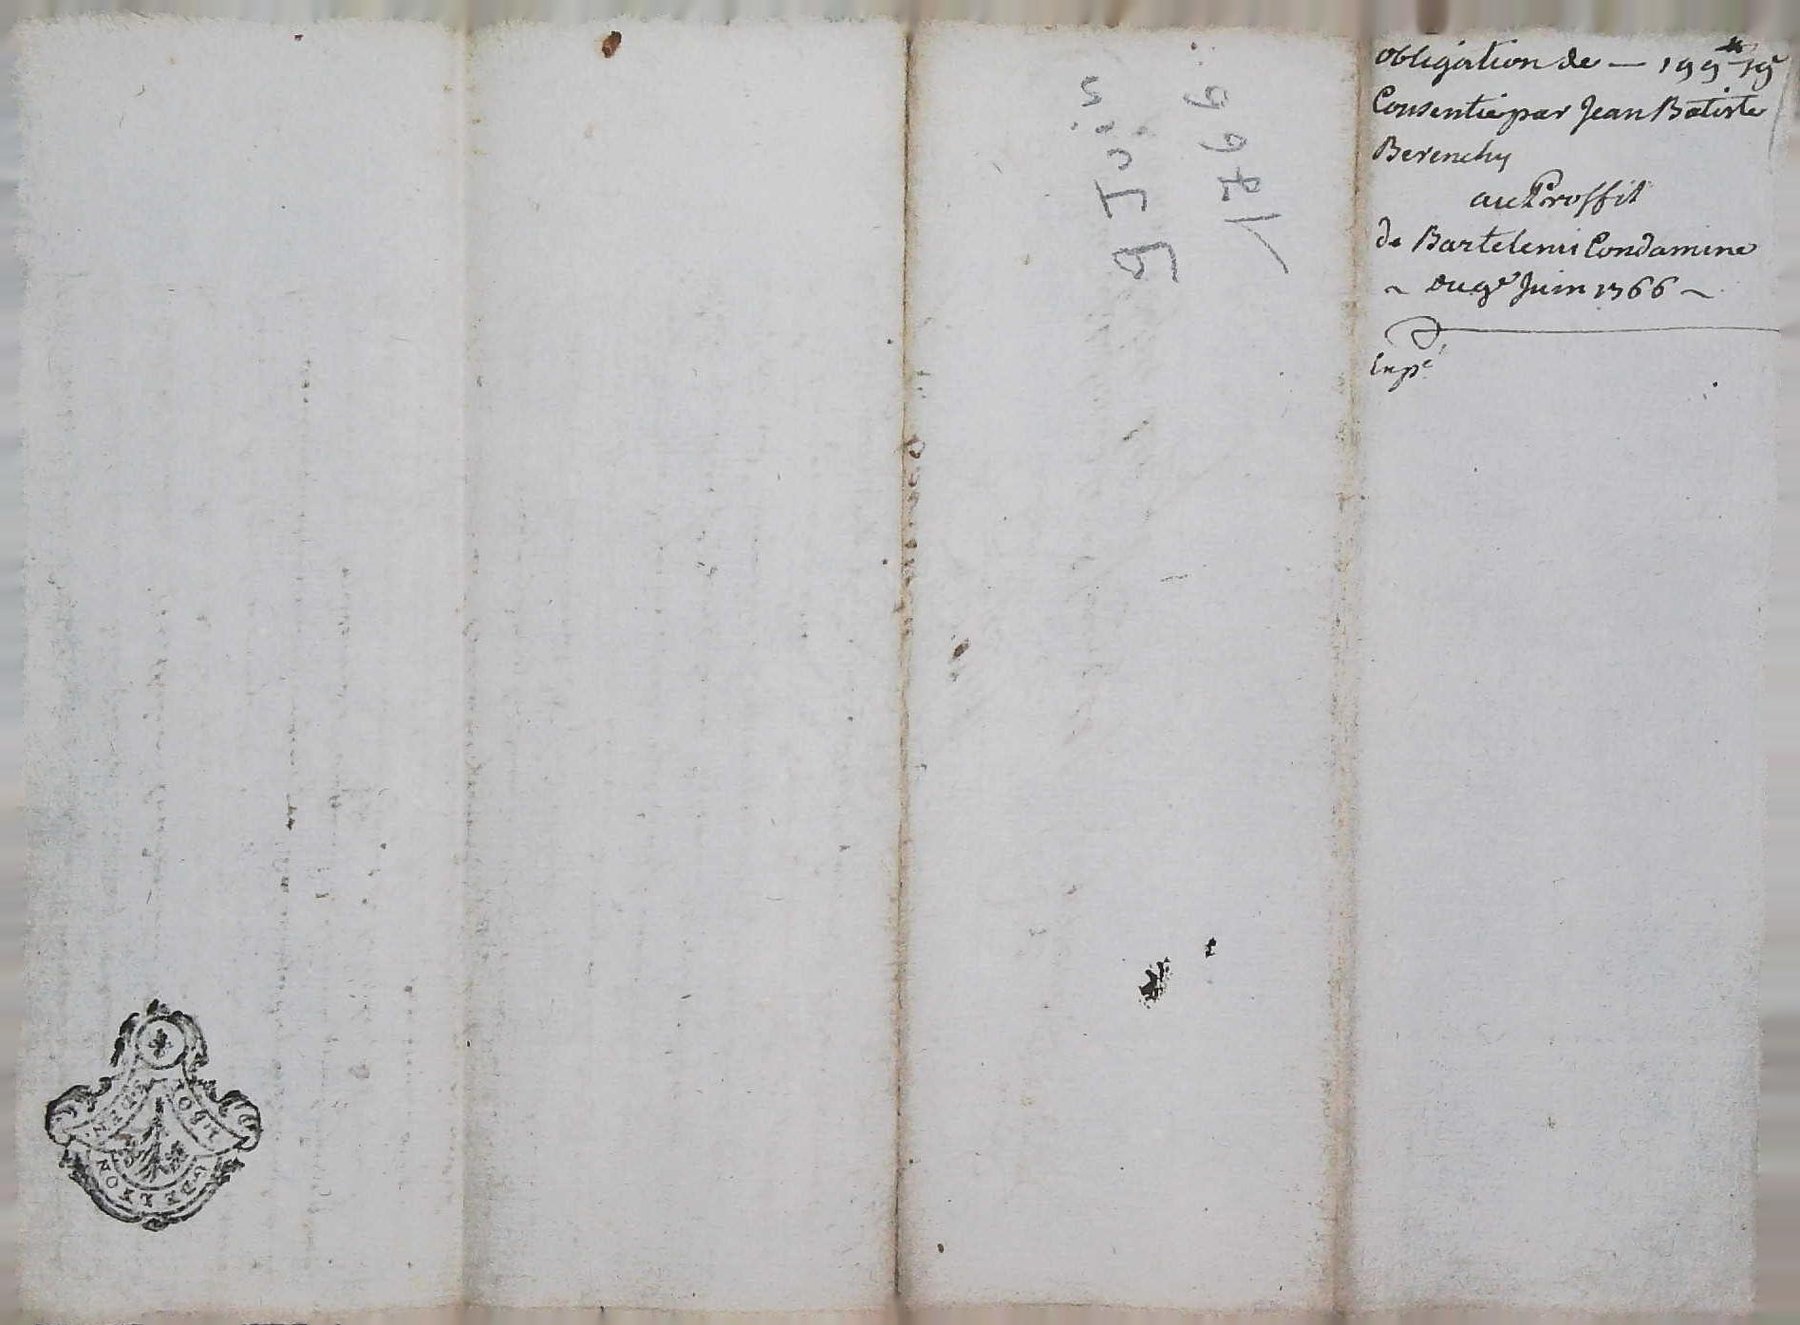 Obligation de — 199# 19s
Consentie par Jean Batiste
Berenchy
au Proffit
de Bartelemi Condamine
~ du 9e Juin 1766 ~
Expé
1766
9 Juin
DE LYON